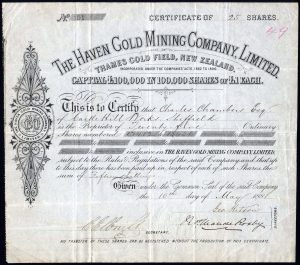 No. CERTIFICATE OF 25 SHARES.
49
THE HAVEN GOLD MINING COMPANY, LIMITED.
THAMES GOLD FIELD, NEW ZEALAND.
INCORPORATED UNDER THE COMPANIES ACTS, 1862 TO 1890.
CAPITAL £100,000 IN 100,000 SHARES OF £1 EACH.
This is to Certify that Charles Chambers Esq
of Sheffield
is the Proprietor of Twenty five Ordinary
Shares numbered
inclusive in THE HAVEN GOLD MINING COMPANY, LIMITED
subject to the Rules & Regulations of the said Company and that up
to this day there has been paid up in respect of each of such Shares the
sum of
Given under the Common Seal of the said Company
the 16th day of May
DIRECTORS.
SECRETARY.
NO TRANSFER OF THESE SHARES CAN BE REGISTERED WITHOUT THE PRODUCTION OF THIS CERTIFICATE.